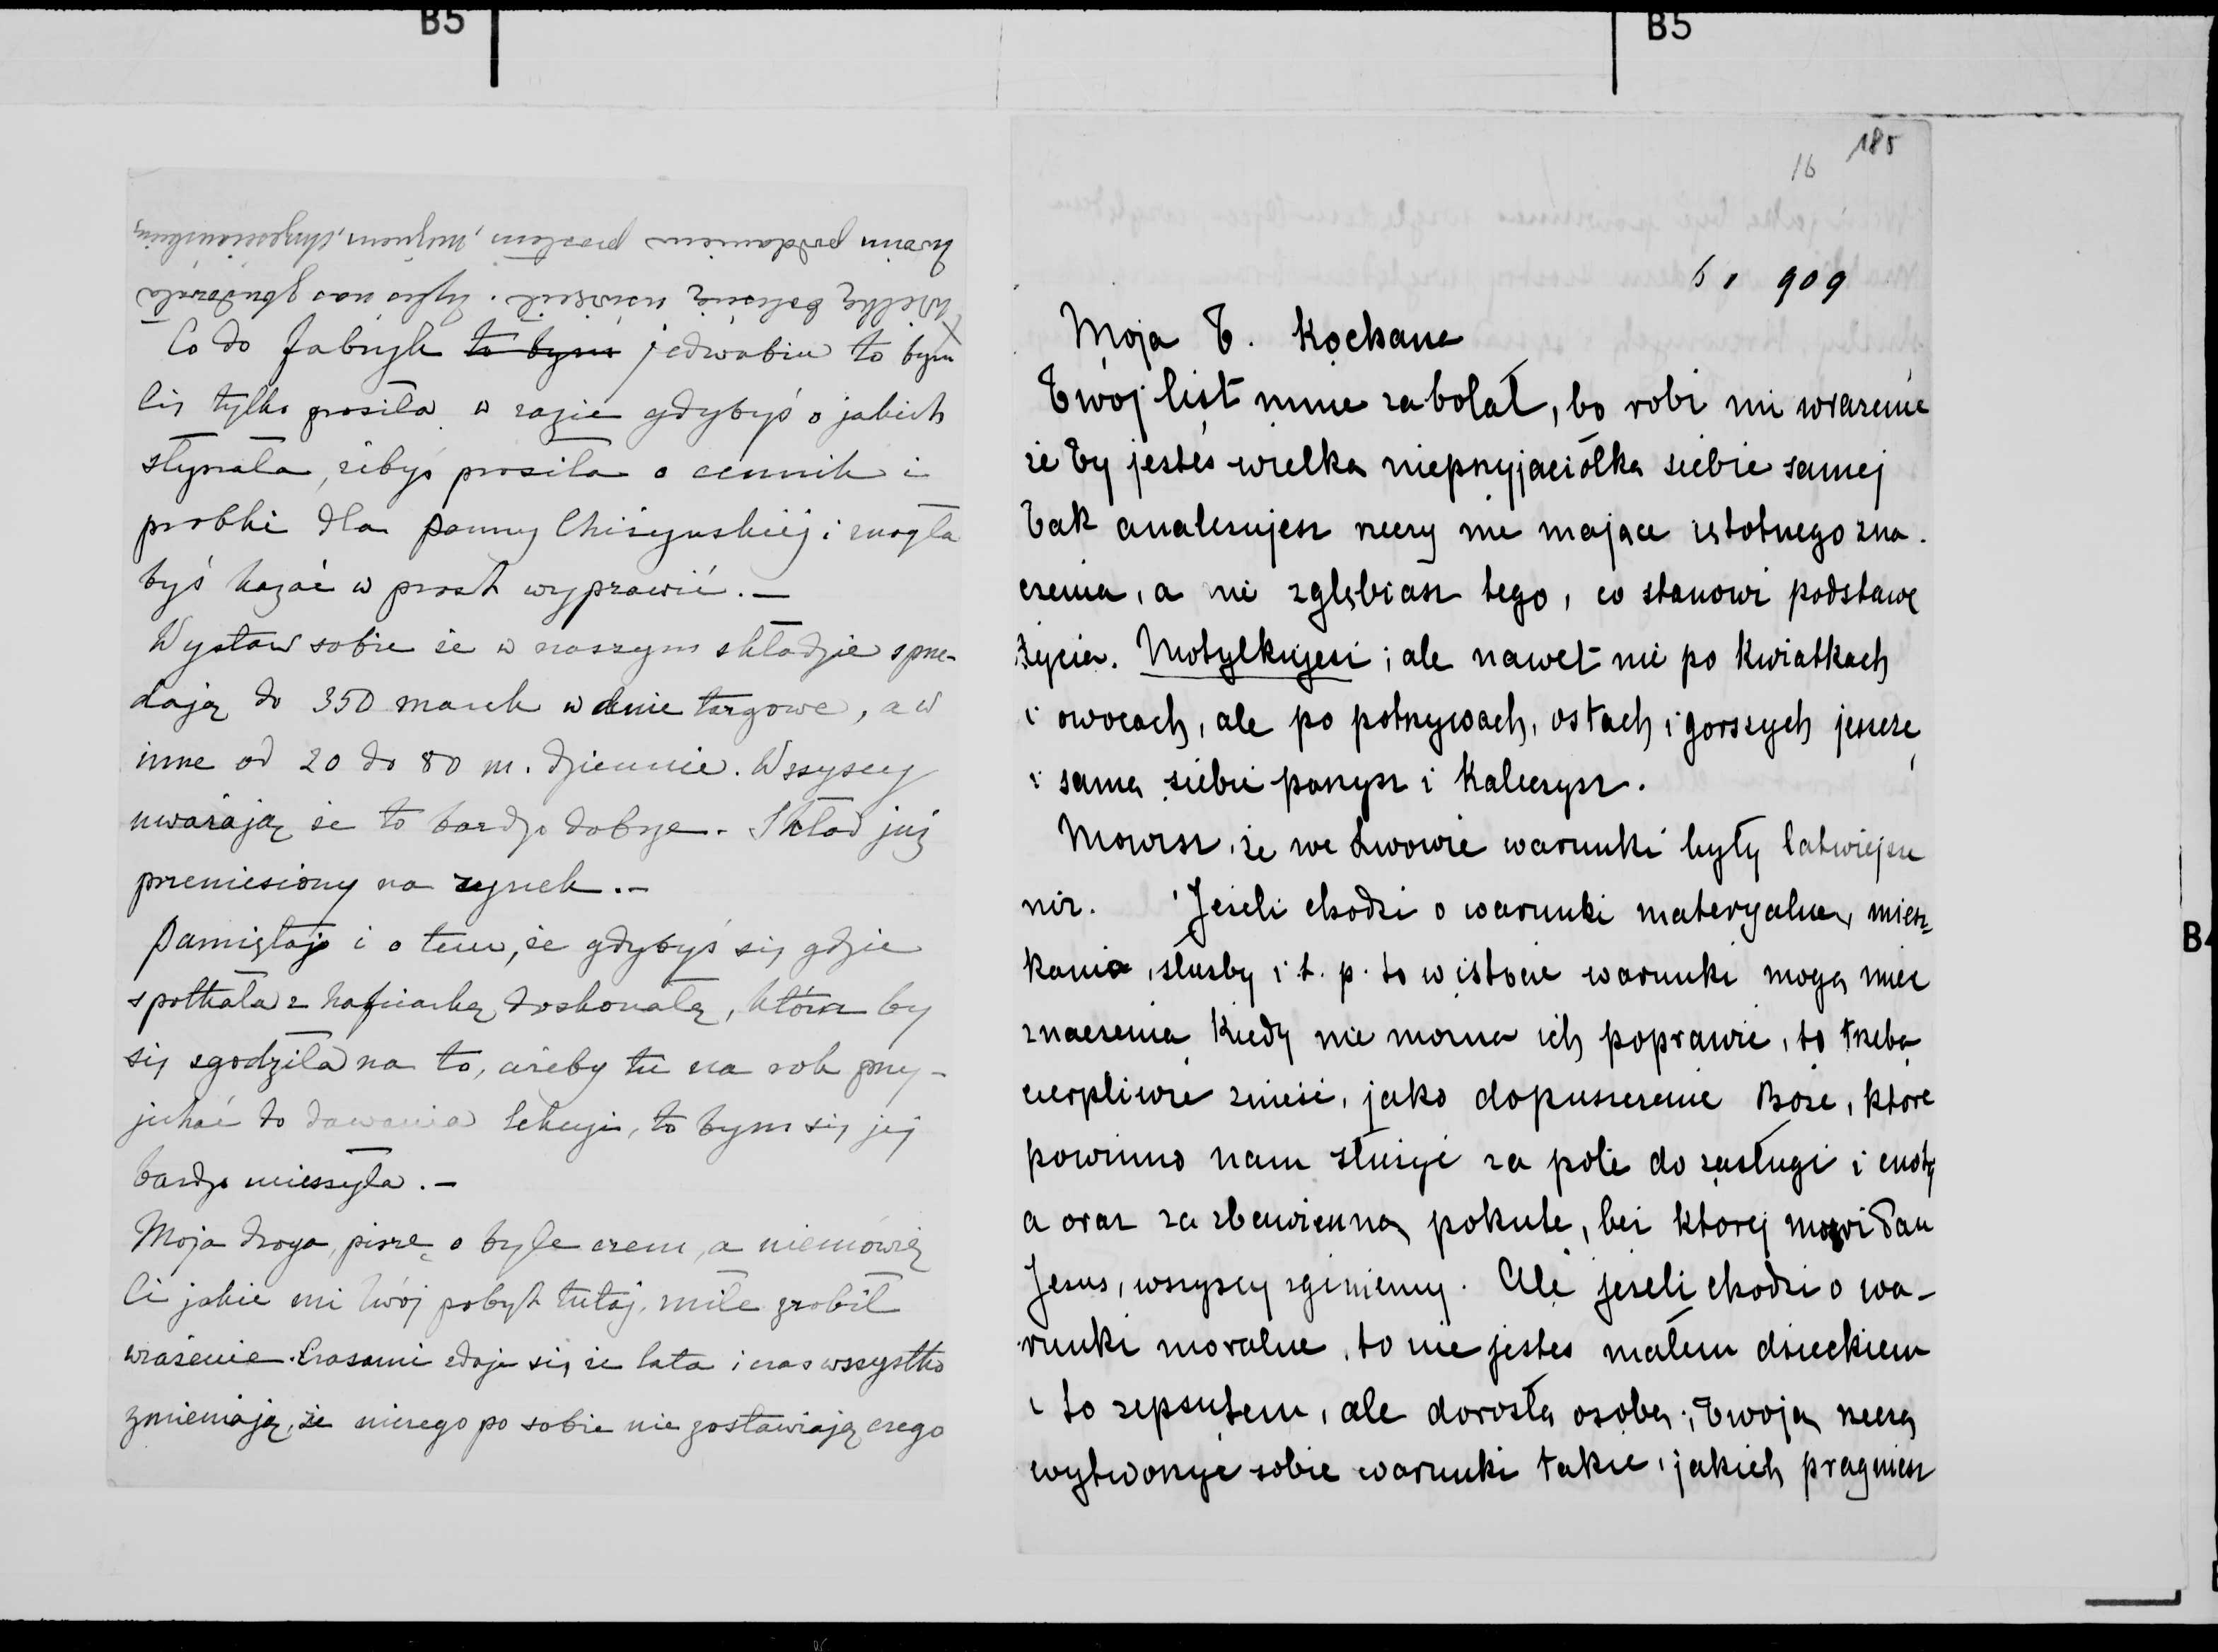 B5
B5
Co do fabryk to bym jedwabiu to bym
Cię tylko prosiła w razie gdybyś o jakich
słyszała, żebyś prosiła o cennik i
probki dla Panny Chiżynskiéj i mogła
byś kazać w prost wyprawić. —
Wystaw sobie że w naszym składzie sprze-
dają do 350 marek w dnie targowe, a w
inne od 20 do 80 m. dziennie. Wszyscy
uważają że to bardzo dobrze. Skład już
przeniesiony na rynek. —
Pamiętaj i o tem, że gdybyś się gdzie
spotkała z hafciarką doskonałą, która by
się zgodziła na to, ażeby tu na rok przy-
jechać do dawania lekcyi, to bym się jej
bardzo ucieszyła. —
Moja droga, piszę o byle czem, a niemówię
Ci jakie mi twój pobyt tutaj, miłe zrobił
wrażenie. Czasami zdaje się że lata i czas wszystko
zmieniają, że niczego po sobie nie zostawiają czego
wielką usiścił. życie nas
twoim poddaniem prostem, mężnem, chrześciańskim
185
16
6 1 909
Moja T. Kochana
Twój list mnie zabolał, bo robi mi wrazenie
że Ty jesteś wielka nieprzyjaciółka siebie samej
Tak analizujesz rzeczy nie mające istotnego zna-
czenia, a nie zgłębiasz tego, co stanowi podstawę
życia. Motylkujesz; ale nawet nie po kwiatkach
i owocach, ale po pokrzywach, ostach i gorszych jeszcze
i sama siebie parzysz i kaleczysz.
Mowisz, że we Lwowie warunki były łatwiejsze
niz. Jeżeli chodzi o warunki materyalne, miesz-
kania, słuzby i t. p. to w istocie warunki mogą miec
znaczenia Kiedy nie mozna ich poprawić, to trzeba
cierpliwie znieść, jako dopuszczenie Boże, które
powinno nam służyć za pole do zasługi i cnoty
a oraz za zbawienną pokutę, bez ktorej mowi Pan
Jezus, wszyscy zginiemy. Ale jezeli chodzi o wa-
runki moralne, to nie jestes małem dzieckiem
i to zepsutem, ale dorosłą osobą; Twoją rzeczą
wytworzyć sobie warunki takie, jakich pragniesz
B4